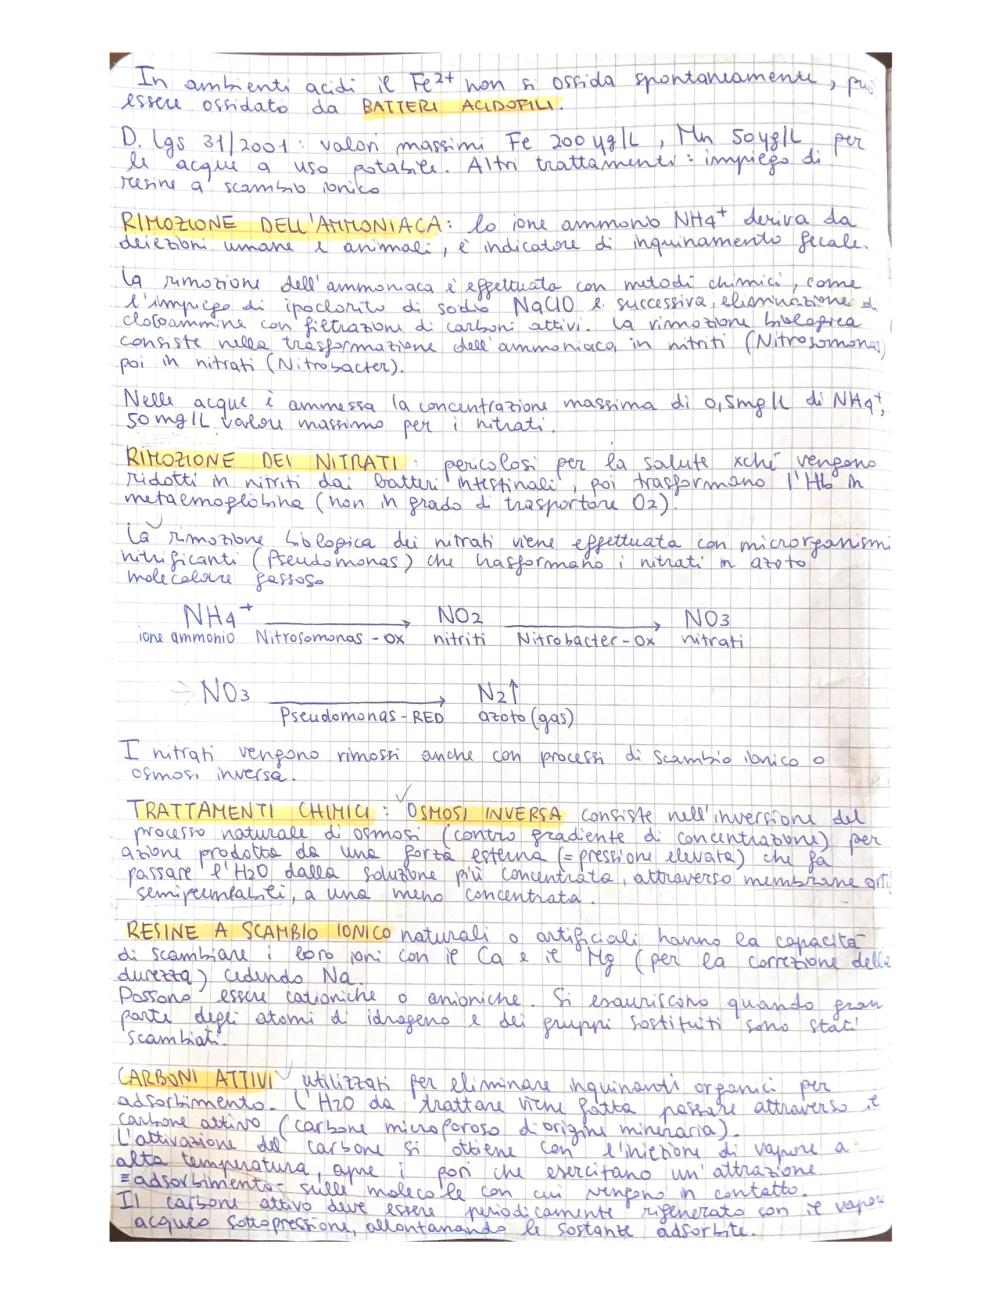 In ambienti acidi il Fe2+ non si ossida spontaneamente, può
essere ossidato da BATTERI ACIDOFILI.
D. lgs 31/2001: valori massimi Fe 200 µg/L, Mn 50 µg/L per
le acque a uso potabile. Altri trattamenti: impiego di
resine a scambio ionico
RIMOZIONE DELL'AMMONIACA: lo ione ammonio NH4+ deriva da
deiezioni umane e animali, è indicatore di inquinamento fecale.
La rimozione dell'ammoniaca è effettuata con metodi chimici, come
l'impiego di ipoclorito di sodio NaClO e successiva eliminazione di
cloroammine con filtrazione di carboni attivi. La rimozione biologica
consiste nella trasformazione dell'ammoniaca in nitriti (Nitrosomonas)
poi in nitrati (Nitrobacter).
Nelle acque è ammessa la concentrazione massima di 0,5mg/L di NH4+,
50 mg/L valore massimo per i nitrati.
RIMOZIONE DEI NITRATI: pericolosi per la salute xché vengono
ridotti in nitriti dai batteri intestinali, poi trasformano l'Hb in
metaemoglobina (non in grado di trasportare O2).
La rimozione biologica dei nitrati viene effettuata con microrganismi
nitrificanti (Pseudomonas) che trasformano i nitrati in azoto
molecolare gassoso
NH4+ → NO2 → NO3
ione ammonio Nitrosomonas - OX nitriti Nitrobacter - OX nitrati
→ NO3 → N2↑
Pseudomonas - RED azoto (gas)
I nitrati vengono rimossi anche con processi di scambio ionico o
osmosi inversa.
TRATTAMENTI CHIMICI: OSMOSI INVERSA consiste nell'inversione del
processo naturale di osmosi (contro gradiente di concentrazione) per
azione prodotta da una forza esterna (= pressione elevata) che fa
passare l'H2O dalla soluzione più concentrata, attraverso membrane
semipermeabili, a una meno concentrata.
RESINE A SCAMBIO IONICO naturali o artificiali hanno la capacità
di scambiare i loro ioni con il Ca e il Mg (per la correzione della
durezza) cedendo Na.
Possono essere cationiche o anioniche. Si esauriscono quando gran
parte degli atomi di idrogeno e dei gruppi sostituiti sono stati
scambiati.
CARBONI ATTIVI utilizzati per eliminare inquinanti organici per
adsorbimento. L'H2O da trattare viene fatta passare attraverso il
carbone attivo (carbone microporoso di origine mineraria).
L'attivazione del carbone si ottiene con l'iniezione di vapore a
alta temperatura, apre i pori che esercitano un'attrazione
=adsorbimento= sulle molecole con cui vengono in contatto.
Il carbone attivo deve essere periodicamente rigenerato con il vapore
acqueo sottopressione, allontanando le sostante adsorbite.